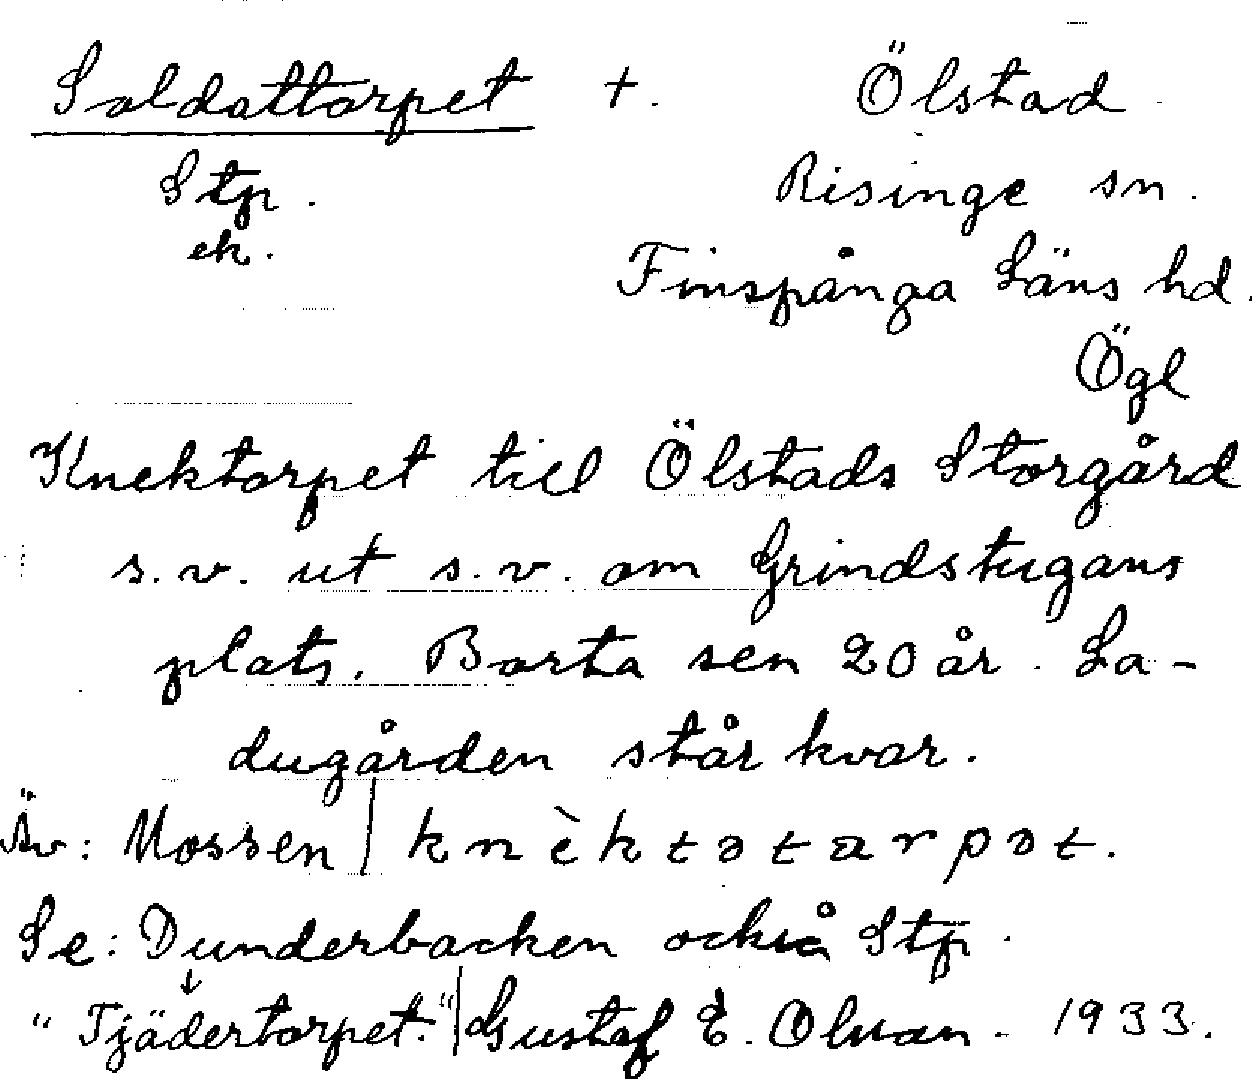 Soldattorpet +. Ölstad
Stp. Risinge sn.
ek. Finspånga Läns hd.
Ögl
Knektorpet till Ölstads Storgård
s.v. ut s.v. om Grindstugans
plats. Borta sen 20 år. La-
dugården står kvar.
Äv: Mossen | knèktətarpət.
Se: Dunderbacken också Stp.
"Tjädertorpet." | Gustaf E. Olvan. 1933.